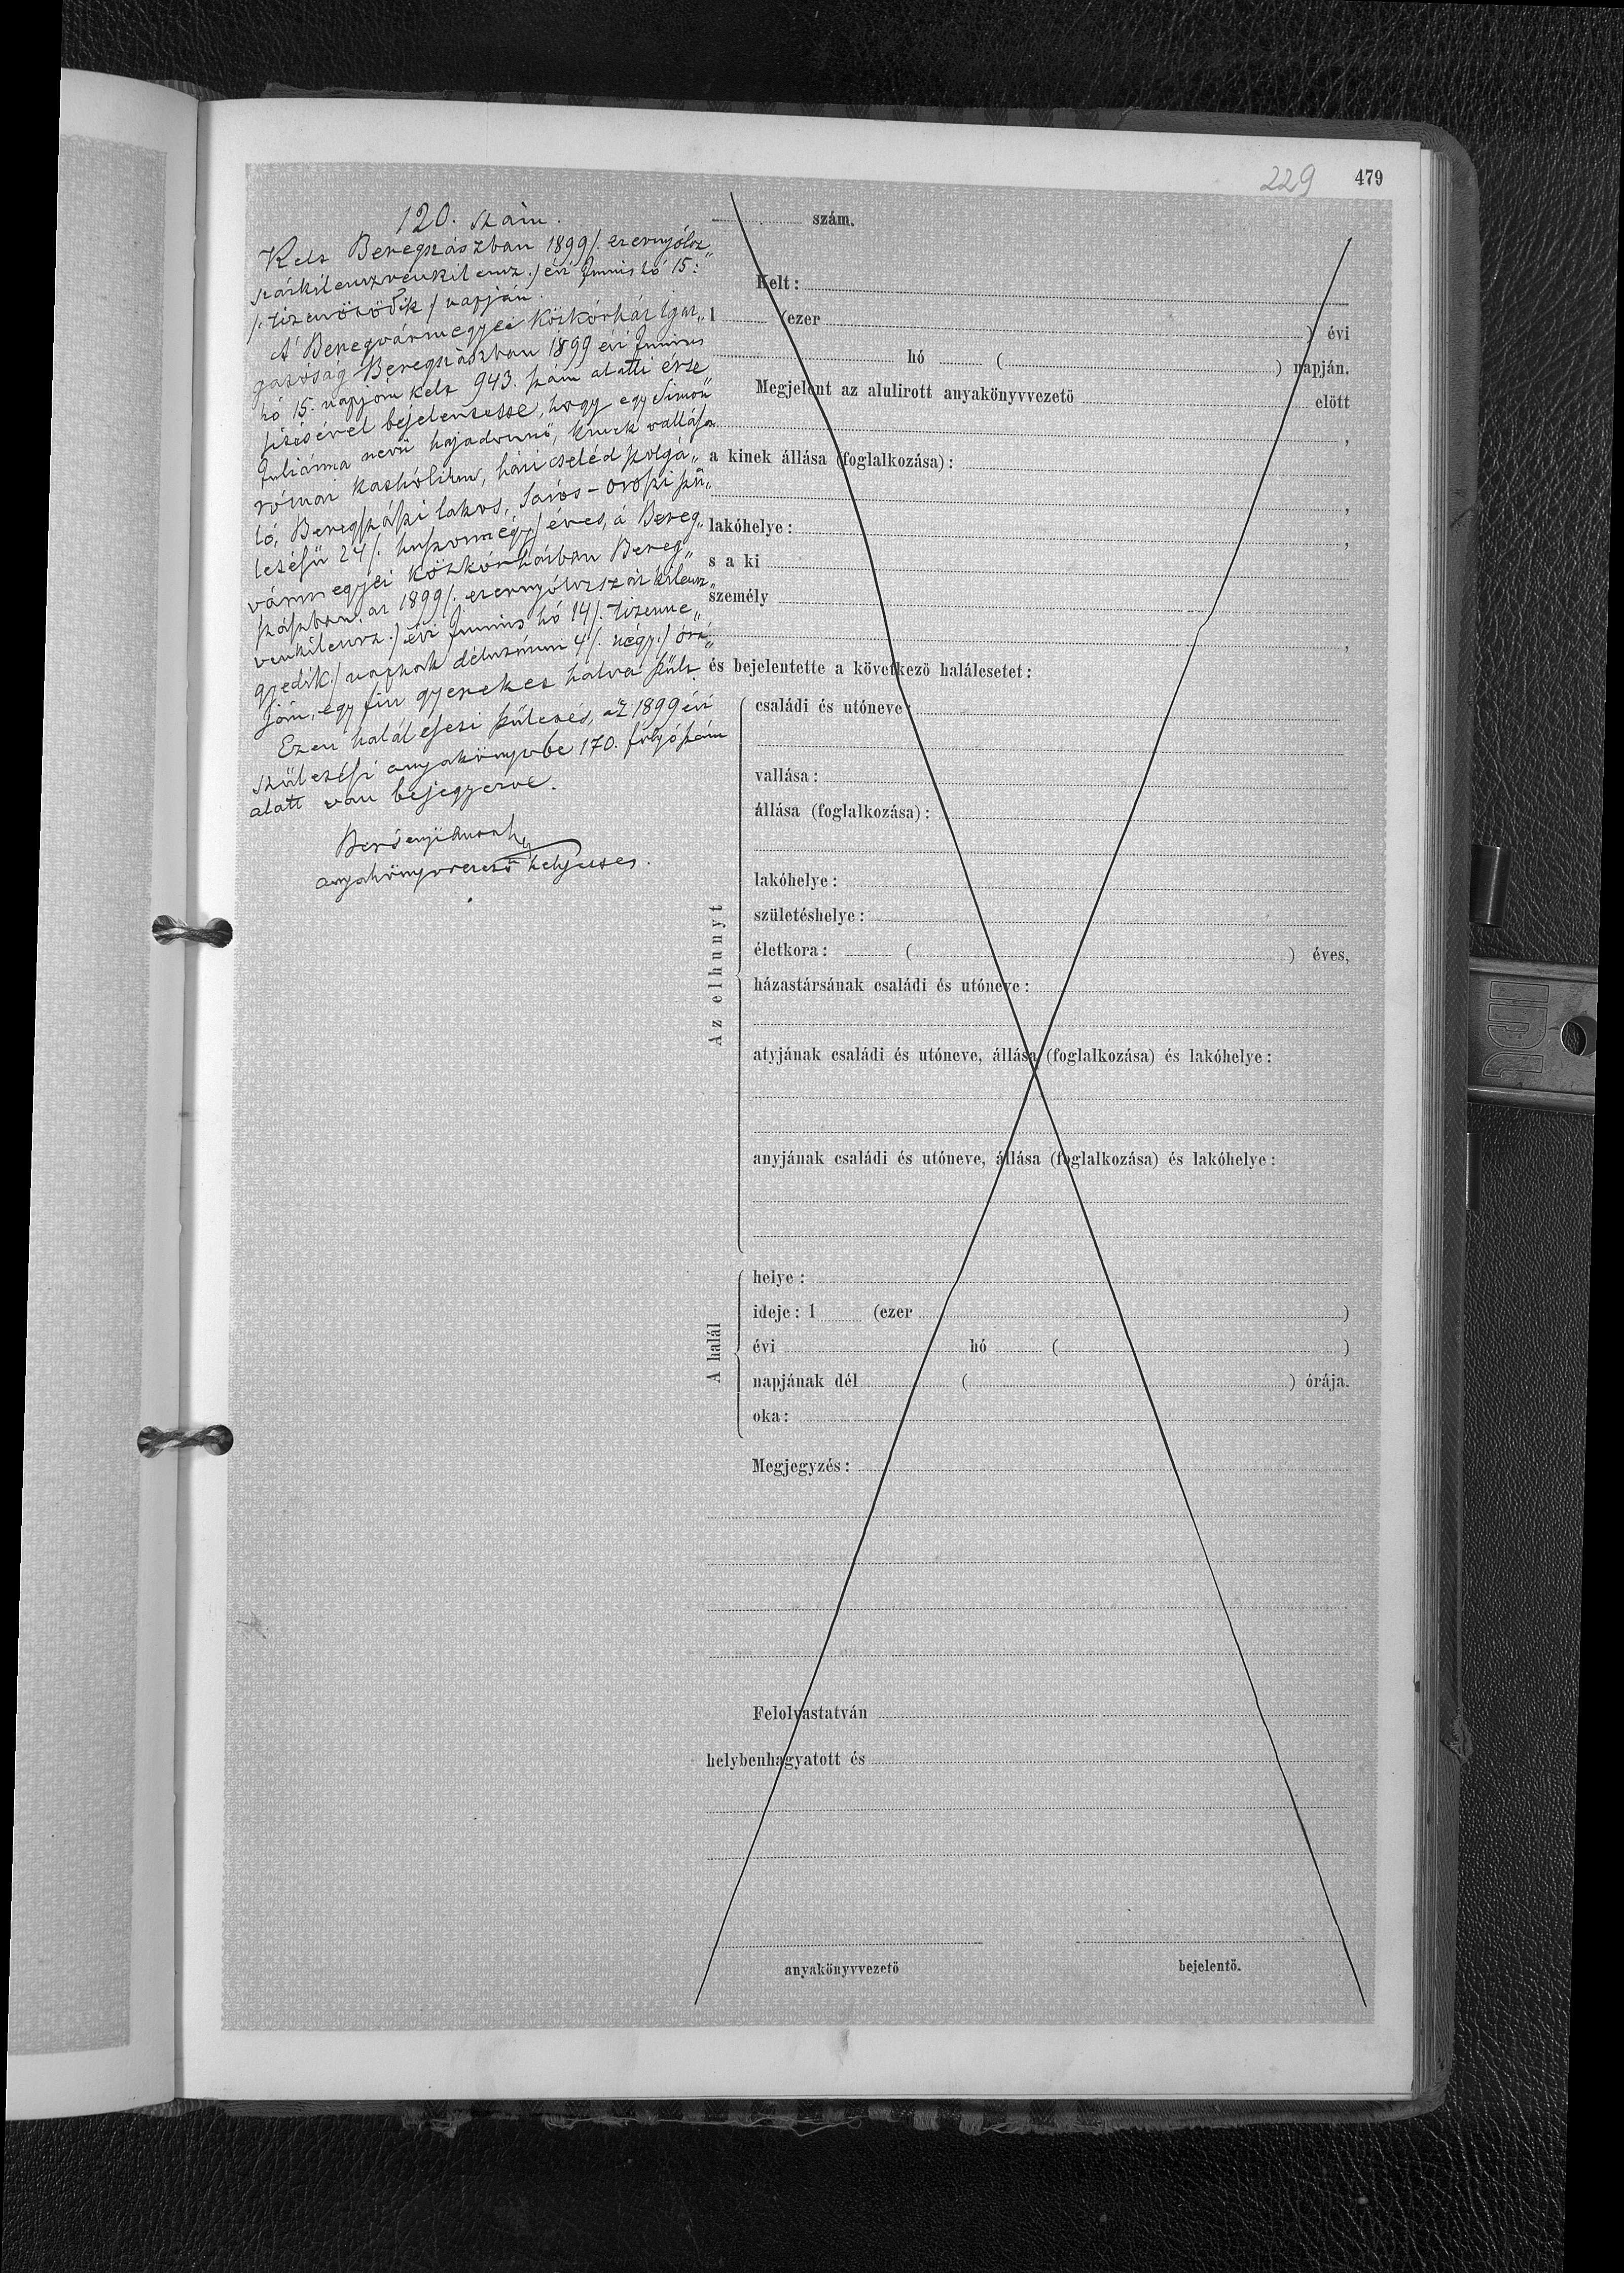 229
479
120. szám.
Kelt Beregszászban 1899/. ezernyolcz„
százkilenczvenkilencz./ évi Junius hó 15:
/: tizenötödik / napján.
A' Beregvármegyei közkórház igaz„
gatóság Beregszászban 1899 évi Junius
hó 15. napján kelt 943. szám alatti érte„
sitésével bejelentette, hogy egy Simon
Juliánna nevü hajadonnő, kinek vallása
római katholikus, házi cseléd szolgá„
ló, Beregszászi lakos, Sáros-oroszi szü„
letésü 24/. huszonnégy/ éves, a Bereg„
vármegyei közkórházban Bereg„
szászban az 1899/. ezernyolczszázkilencz„
venkilencz./ évi Junius hó 14/. tizenne„
gyedik./ napnak délutánni 4/. négy./ órá„
ján, egy fiu gyereket halva szült.
Ezen halál eseti születés, az 1899 évi
születési anyakönyvbe 170. folyószám
alatt van bejegyezve.
anyakönyvvezető helyettes.
szám.
Kelt:
1 (ezer ) évi
hó ( ) napján.
Megjelent az alulirott anyakönyvvezető előtt
,
a kinek állása (foglalkozása):
,
lakóhelye: ,
s a ki
személy
,
és bejelentette a következő halálesetet:
Az elhunyt
családi és utóneve:
vallása:
állása (foglalkozása):
lakóhelye:
születéshelye:
életkora: ( ) éves,
házastársának családi és utóneve:
atyjának családi és utóneve, állása (foglalkozása) és lakóhelye:
anyjának családi és utóneve, állása (foglalkozása) és lakóhelye:
A halál
helye:
ideje: 1 (ezer )
évi hó ( )
napjának dél ( ) órája.
oka:
Megjegyzés:
Felolvastatván
helybenhagyatott és
anyakönyvvezető
bejelentő.